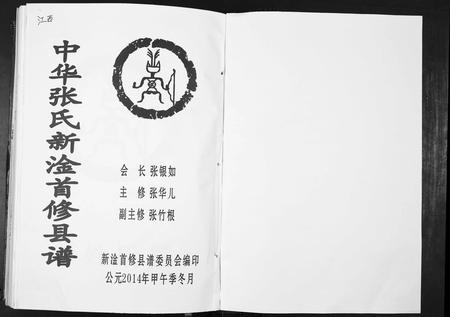 江西
中华张氏新淦首修县谱
会 长 张银如
主 修 张华儿
副主修 张竹根
新淦首修县谱委员会编印
公元2014年甲午季冬月